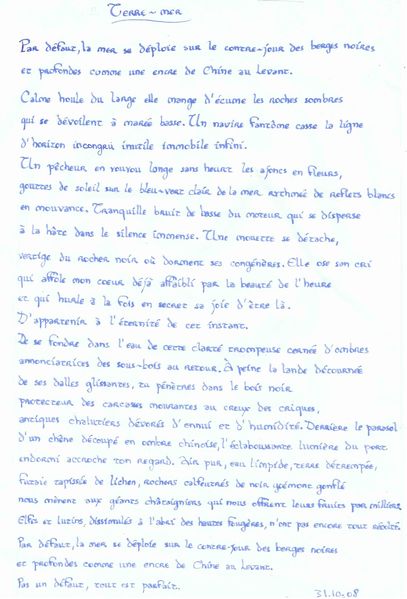 Terre-mer
Par défaut, la mer se déploie sur le contre-jour des berges noires
et profondes comme une encre de Chine au Levant.
Calme houle du large elle mange d'écume les roches sombres
qui se dévoilent à marée basse. Un navire fantôme casse la ligne
d'horizon incongru inutile immobile infini.
Un pêcheur en youyou longe sans heurt les ajoncs en fleurs,
gouttes de soleil sur le bleu-vert clair de la mer rythmée de reflets blancs
en mouvance. Tranquille bruit de basse du moteur qui se disperse
à la hâte dans le silence immense. Une mouette se détache,
vertige du rocher noir où dorment ses congénères. Elle ose son cri
qui affole mon coeur déjà affaibli par la beauté de l'heure
et qui hurle à la fois en secret sa joie d'être là.
D'appartenir à l'éternité de cet instant.
De se fondre dans l'eau de cette clarté trompeuse cernée d'ombres
annonciatrices des sous-bois au retour. À peine la lande détournée
de ses dalles glissantes, tu pénètres dans le bois noir
protecteur des carcasses mourantes au creux des criques,
antiques chalutiers dévorés d'ennui et d'humidité. Derrière le parasol
d'un chêne découpé en ombre chinoise, l'éclaboussante lumière du port
endormi accroche ton regard. Air pur, eau limpide, terre détrempée,
futaie tapissée de lichen, rochers calfeutrés de noir goémont gonflé
nous mènent aux géants châtaigniers qui nous offrent leurs fruits par milliers.
Elfes et lutins, dissimulés à l'abri des hautes fougères, n'ont pas encore tout récolté.
Par défaut, la mer se déploie sur le contre-jour des berges noires
et profondes comme une encre de Chine au Levant.
Pas un défaut, tout est parfait.
31.10.08